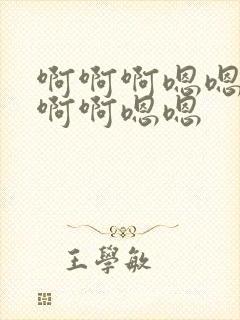 啊啊啊嗯嗯
啊啊嗯嗯
王學敏